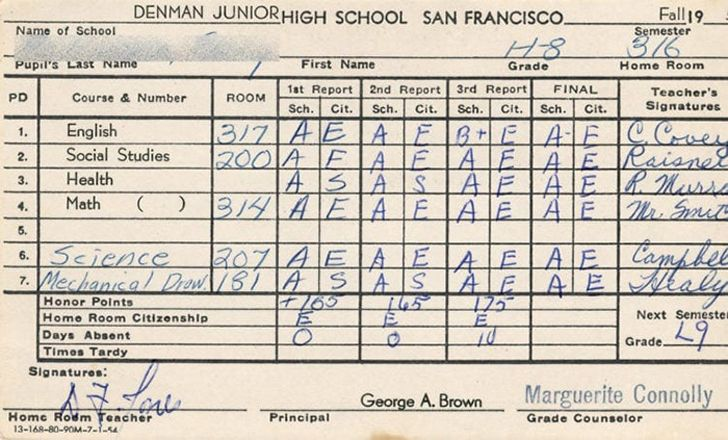 DENMAN JUNIOR HIGH SCHOOL SAN FRANCISCO Fall 19
Name of School Semester
H-8 316
Pupil's Last Name First Name Grade Home Room
PD Course & Number ROOM 1st Report 2nd Report 3rd Report FINAL Teacher's Signatures
Sch. Cit. Sch. Cit. Sch. Cit. Sch. Cit.
1. English 317 A E A E B+ E A- E C. Covey
2. Social Studies 200 A E A E A E A E Raisner
3. Health A S A S A E A E R. Murra
4. Math ( ) 314 A E A E A E A E Mr. Smit
5.
6. Science 207 A E A E A E A E Campbel
7. Mechanical Draw. 181 A S A S A E A E Healy
Honor Points +165 165 175
Home Room Citizenship E E E Next Semeste
Days Absent 0 0 10 Grade L9
Times Tardy
Signatures:
George A. Brown Marguerite Connolly
Home Room Teacher Principal Grade Counselor
13-168-80-90M-7-1-54